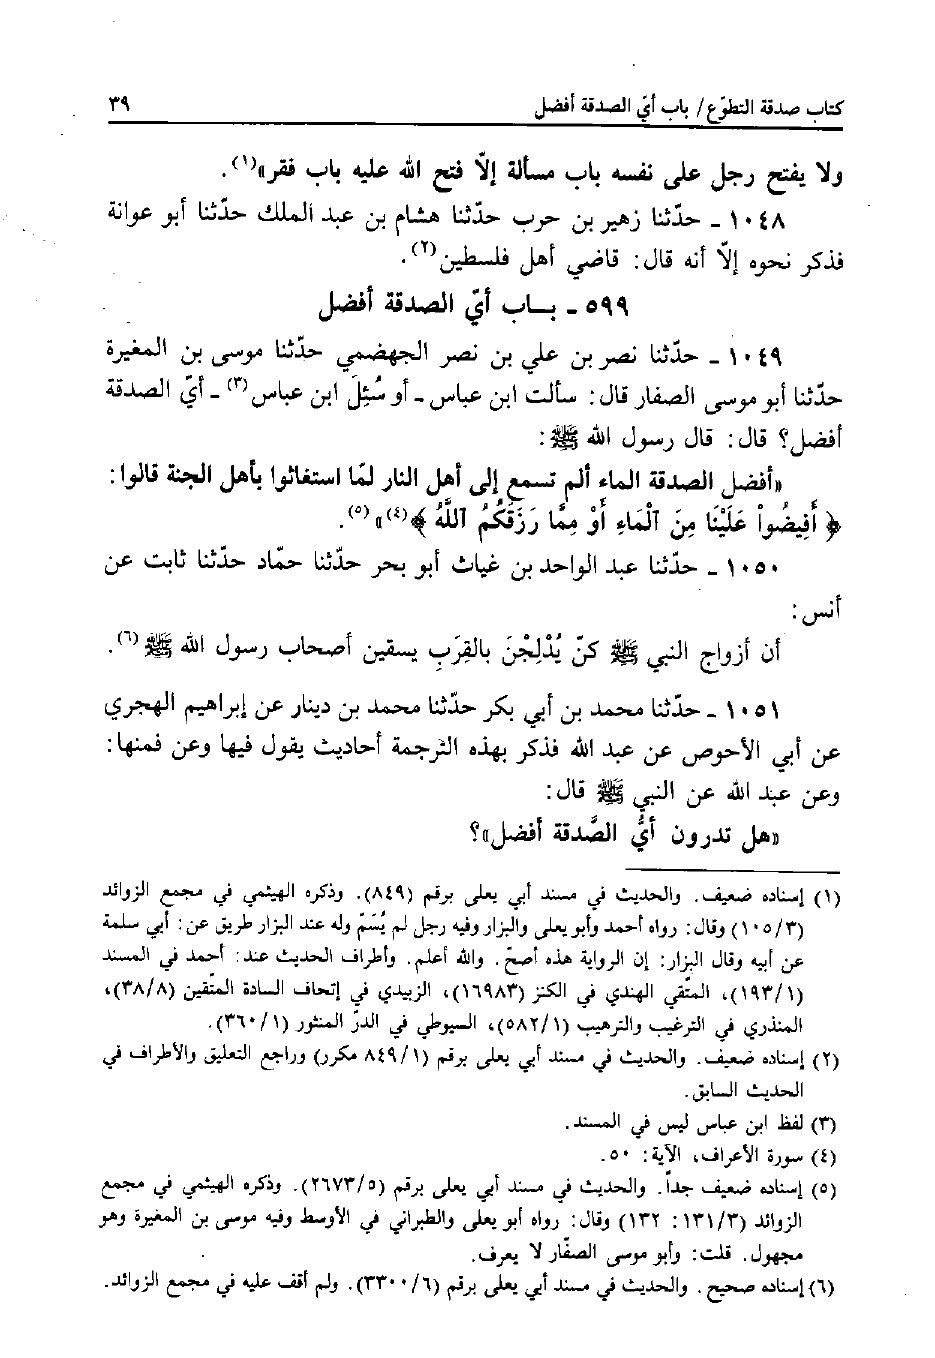 كتاب صدقة التطوّع/ باب أيّ الصدقة أفضل ٣٩
ولا يفتح رجل على نفسه باب مسألة إلّا فتح الله عليه باب فقر»(١).
١٠٤٨ ـ حدّثنا زهير بن حرب حدّثنا هشام بن عبد الملك حدّثنا أبو عوانة
فذكر نحوه إلّا أنه قال: قاضي أهل فلسطين(٢).
٥٩٩ ـ بــاب أيّ الصدقة أفضل
١٠٤٩ ـ حدّثنا نصر بن علي بن نصر الجهضمي حدّثنا موسى بن المغيرة
حدّثنا أبو موسى الصفار قال: سألت ابن عباس ـ أو سُئِلَ ابن عباس(٣) ـ أيّ الصدقة
أفضل؟ قال: قال رسول الله ﷺ:
«أفضل الصدقة الماء ألم تسمع إلى أهل النار لمّا استغاثوا بأهل الجنة قالوا:
﴿ أَفِيضُواْ عَلَيْنَا مِنَ ٱلْمَاءِ أَوْ مِمَّا رَزَقَكُمُ ٱللَّهُ ﴾(٤)»(٥).
١٠٥٠ ـ حدّثنا عبد الواحد بن غياث أبو بحر حدّثنا حمّاد حدّثنا ثابت عن
أنس:
أن أزواج النبي ﷺ كنّ يُدْلِجْنَ بالقِرَبِ يسقين أصحاب رسول الله ﷺ(٦).
١٠٥١ ـ حدّثنا محمد بن أبي بكر حدّثنا محمد بن دينار عن إبراهيم الهجري
عن أبي الأحوص عن عبد الله فذكر بهذه الترجمة أحاديث يقول فيها وعن فمنها:
وعن عبد الله عن النبي ﷺ قال:
«هل تدرون أيُّ الصَّدقة أفضل»؟
(١) إسناده ضعيف. والحديث في مسند أبي يعلى برقم (٨٤٩). وذكره الهيثمي في مجمع الزوائد
(٣/١٠٥) وقال: رواه أحمد وأبو يعلى والبزار وفيه رجل لم يُسَمّ وله عند البزار طريق عن: أبي سلمة
عن أبيه وقال البزار: إن الرواية هذه أصحّ. والله أعلم. وأطراف الحديث عند: أحمد في المسند
(١/١٩٣)، المتّقي الهندي في الكنز (١٦٩٨٣)، الزبيدي في إتحاف السادة المتّقين (٣٨/٨)،
المنذري في الترغيب والترهيب (١/٥٨٢)، السيوطي في الدرّ المنثور (١/٣٦٠).
(٢) إسناده ضعيف. والحديث في مسند أبي يعلى برقم (٨٤٩/١ مكرر) وراجع التعليق والأطراف في
الحديث السابق.
(٣) لفظ ابن عباس ليس في المسند.
(٤) سورة الأعراف، الآية: ٥٠.
(٥) إسناده ضعيف جداً. والحديث في مسند أبي يعلى برقم (٢٦٧٣/٥). وذكره الهيثمي في مجمع
الزوائد (٣/١٣١: ١٣٢) وقال: رواه أبو يعلى والطبراني في الأوسط وفيه موسى بن المغيرة وهو
مجهول. قلت: وأبو موسى الصفّار لا يعرف.
(٦) إسناده صحيح. والحديث في مسند أبي يعلى برقم (٣٣٠٠/٦). ولم أقف عليه في مجمع الزوائد.